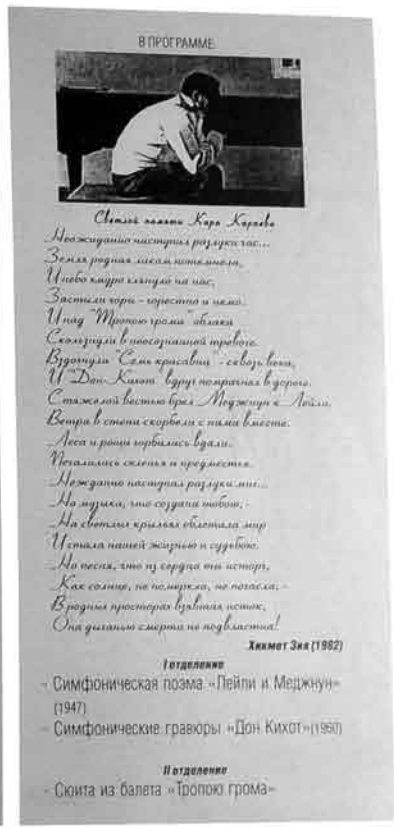 В ПРОГРАММЕ:
Светлой памяти Кара Караева
Неожиданно наступил разлуки час...
Земля родная ликом потемнела,
И небо хмуро глянуло на нас,
Застыли горы - горестно и немо.
И над "Тропою грома" облака
Скользнули в неосознанной тревоге.
Вздогнули "Семь красавиц" - сквозь века,
И "Дон-Кихот" вдруг помрачнел в дороге.
С тяжелой вестью брел Меджнун к Лейли.
Ветра в степи скорбели с нами вместе.
Леса и рощи горбились вдали.
Печалились селенья и предместья.
Нежданно наступил разлуки миг...
Но музыка, что создана тобою, -
На светлых крыльях облетала мир
И стала нашей жизнью и судьбою.
Но песня, что из сердца ты исторг,
Как солнце, не померкла, не погасла; -
В родных просторах взявшая исток,
Она дыханью смерти не подвластна!
Хикмет Зия (1982)
I отделение
- Симфоническая поэма «Лейли и Меджнун»
(1947)
- Симфонические гравюры «Дон Кихот» (1960)
II отделение
- Сюита из балета «Тропою грома»